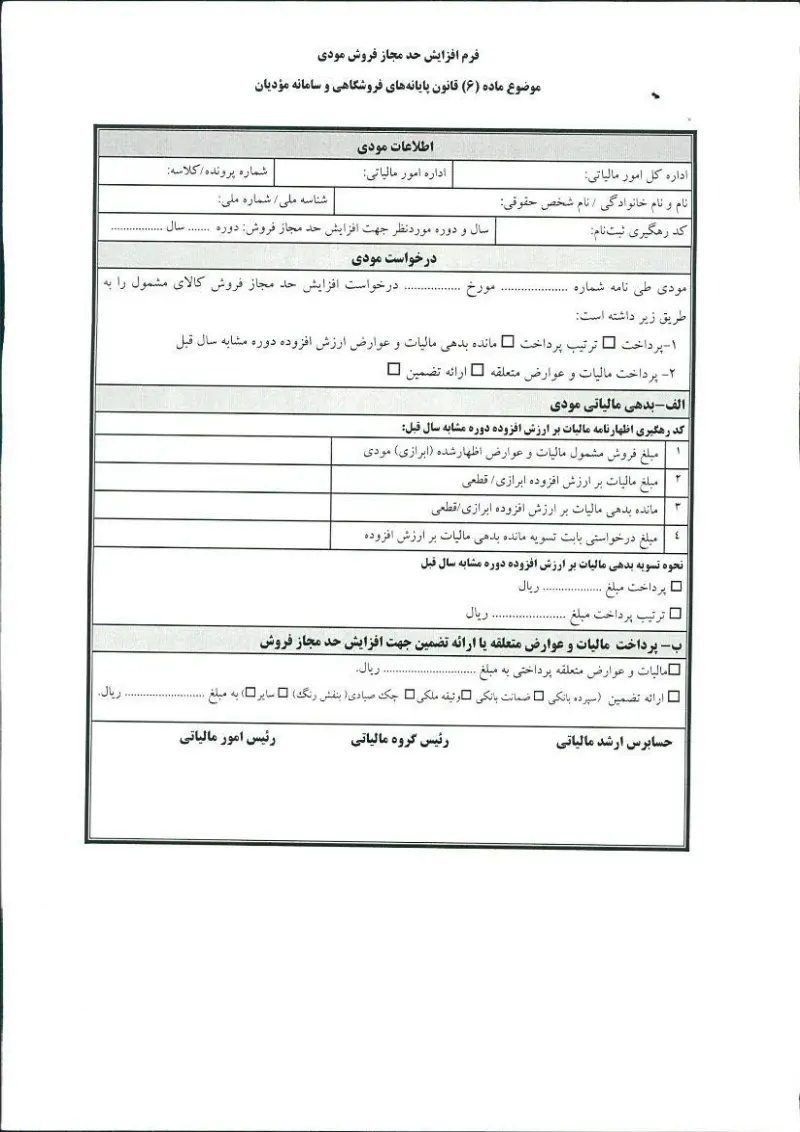 فرم افزایش حد مجاز فروش مودی
موضوع ماده (۶) قانون پایانه‌های فروشگاهی و سامانه مؤدیان
اطلاعات مودی
اداره کل امور مالیاتی: اداره امور مالیاتی: شماره پرونده/کلاسه:
نام و نام خانوادگی / نام شخص حقوقی: شناسه ملی/ شماره ملی:
کد رهگیری ثبت‌نام: سال و دوره موردنظر جهت افزایش حد مجاز فروش: دوره ....... سال .................
درخواست مودی
مودی طی نامه شماره .................... مورخ ................. درخواست افزایش حد مجاز فروش کالای مشمول را به
طریق زیر داشته است:
۱-پرداخت ☐ ترتیب پرداخت ☐ مانده بدهی مالیات و عوارض ارزش افزوده دوره مشابه سال قبل
۲- پرداخت مالیات و عوارض متعلقه ☐ ارائه تضمین ☐
الف-بدهی مالیاتی مودی
کد رهگیری اظهارنامه مالیات بر ارزش افزوده دوره مشابه سال قبل:
۱ مبلغ فروش مشمول مالیات و عوارض اظهارشده (ابرازی) مودی
۲ مبلغ مالیات بر ارزش افزوده ابرازی/ قطعی
۳ مانده بدهی مالیات بر ارزش افزوده ابرازی/قطعی
٤ مبلغ درخواستی بابت تسویه مانده بدهی مالیات بر ارزش افزوده
نحوه تسویه بدهی مالیات بر ارزش افزوده دوره مشابه سال قبل
☐ پرداخت مبلغ .................. ریال
☐ ترتیب پرداخت مبلغ ...................... ریال
ب- پرداخت مالیات و عوارض متعلقه یا ارائه تضمین جهت افزایش حد مجاز فروش
☐مالیات و عوارض متعلقه پرداختی به مبلغ ............................ ریال.
☐ ارائه تضمین (سپرده بانکی ☐ ضمانت بانکی ☐وثیقه ملکی☐ چک صیادی( بنفش رنگ) ☐ سایر☐) به مبلغ ........................ ریال.
حسابرس ارشد مالیاتی رئیس گروه مالیاتی رئیس امور مالیاتی